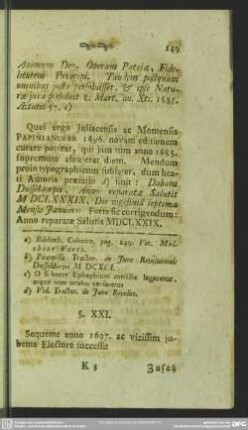 149
Animum Deo, Operam Patriæ, Fide-
litatem Principi. Tandem postquam
omnibus justa persolvisset, & ipse Natu-
ræ jura persolvit 8. Mart. an. Xti. 1685.
Ætatis 57. c)
Quei ergo Juliacensis ac Montensis
PAPINIANUM 1696. novam editionem
curare poterat, qui jam tum anno 1685.
supremum clau erat diem. Mendum
proin typographicum subesset, dum hac-
Autoris præfatio d) finit: Dabam
Dusseldorpii, Anno reparatæ Salutis
M DCLXXXIX. Die vigesima septima
Mensis Januarii: Forte sic corrigendum:
Anno reparatæ Salutis MDCLXXIX.
a) Biblioth. Coloniens. pag. 149. Voc. Mel-
chior Voets.
b) Præmissa Tractat. de Jure Revolutionis
Dusseldorpii M DCXCI.
c) O si homo Epitaphium meriti legerentur,
atque
d) Vid. Tractat. de Jure Revolut.
§. XXI.
Sequente anno 1697. ac vicissim ju-
bente Electore successit
K 3